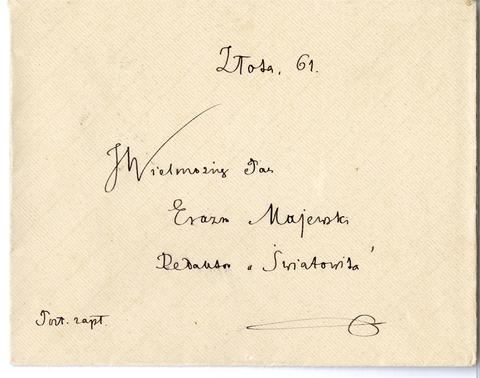 Złota, 61.
JWielmożny Pan
Erazm Majewski
Redaktor „Światowita”
Port. zapł.